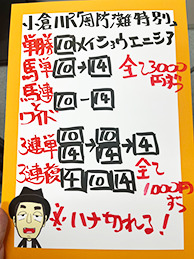 小倉11R「周防灘特別」
単勝 10 メイショウエニシア
馬単 10→14 全て3000円ずつ
馬連 10-14
ワイド
3連単 10/14→10/14→4
3連複 4 10 14 全て1000円ずつ
※ハナ切れる!